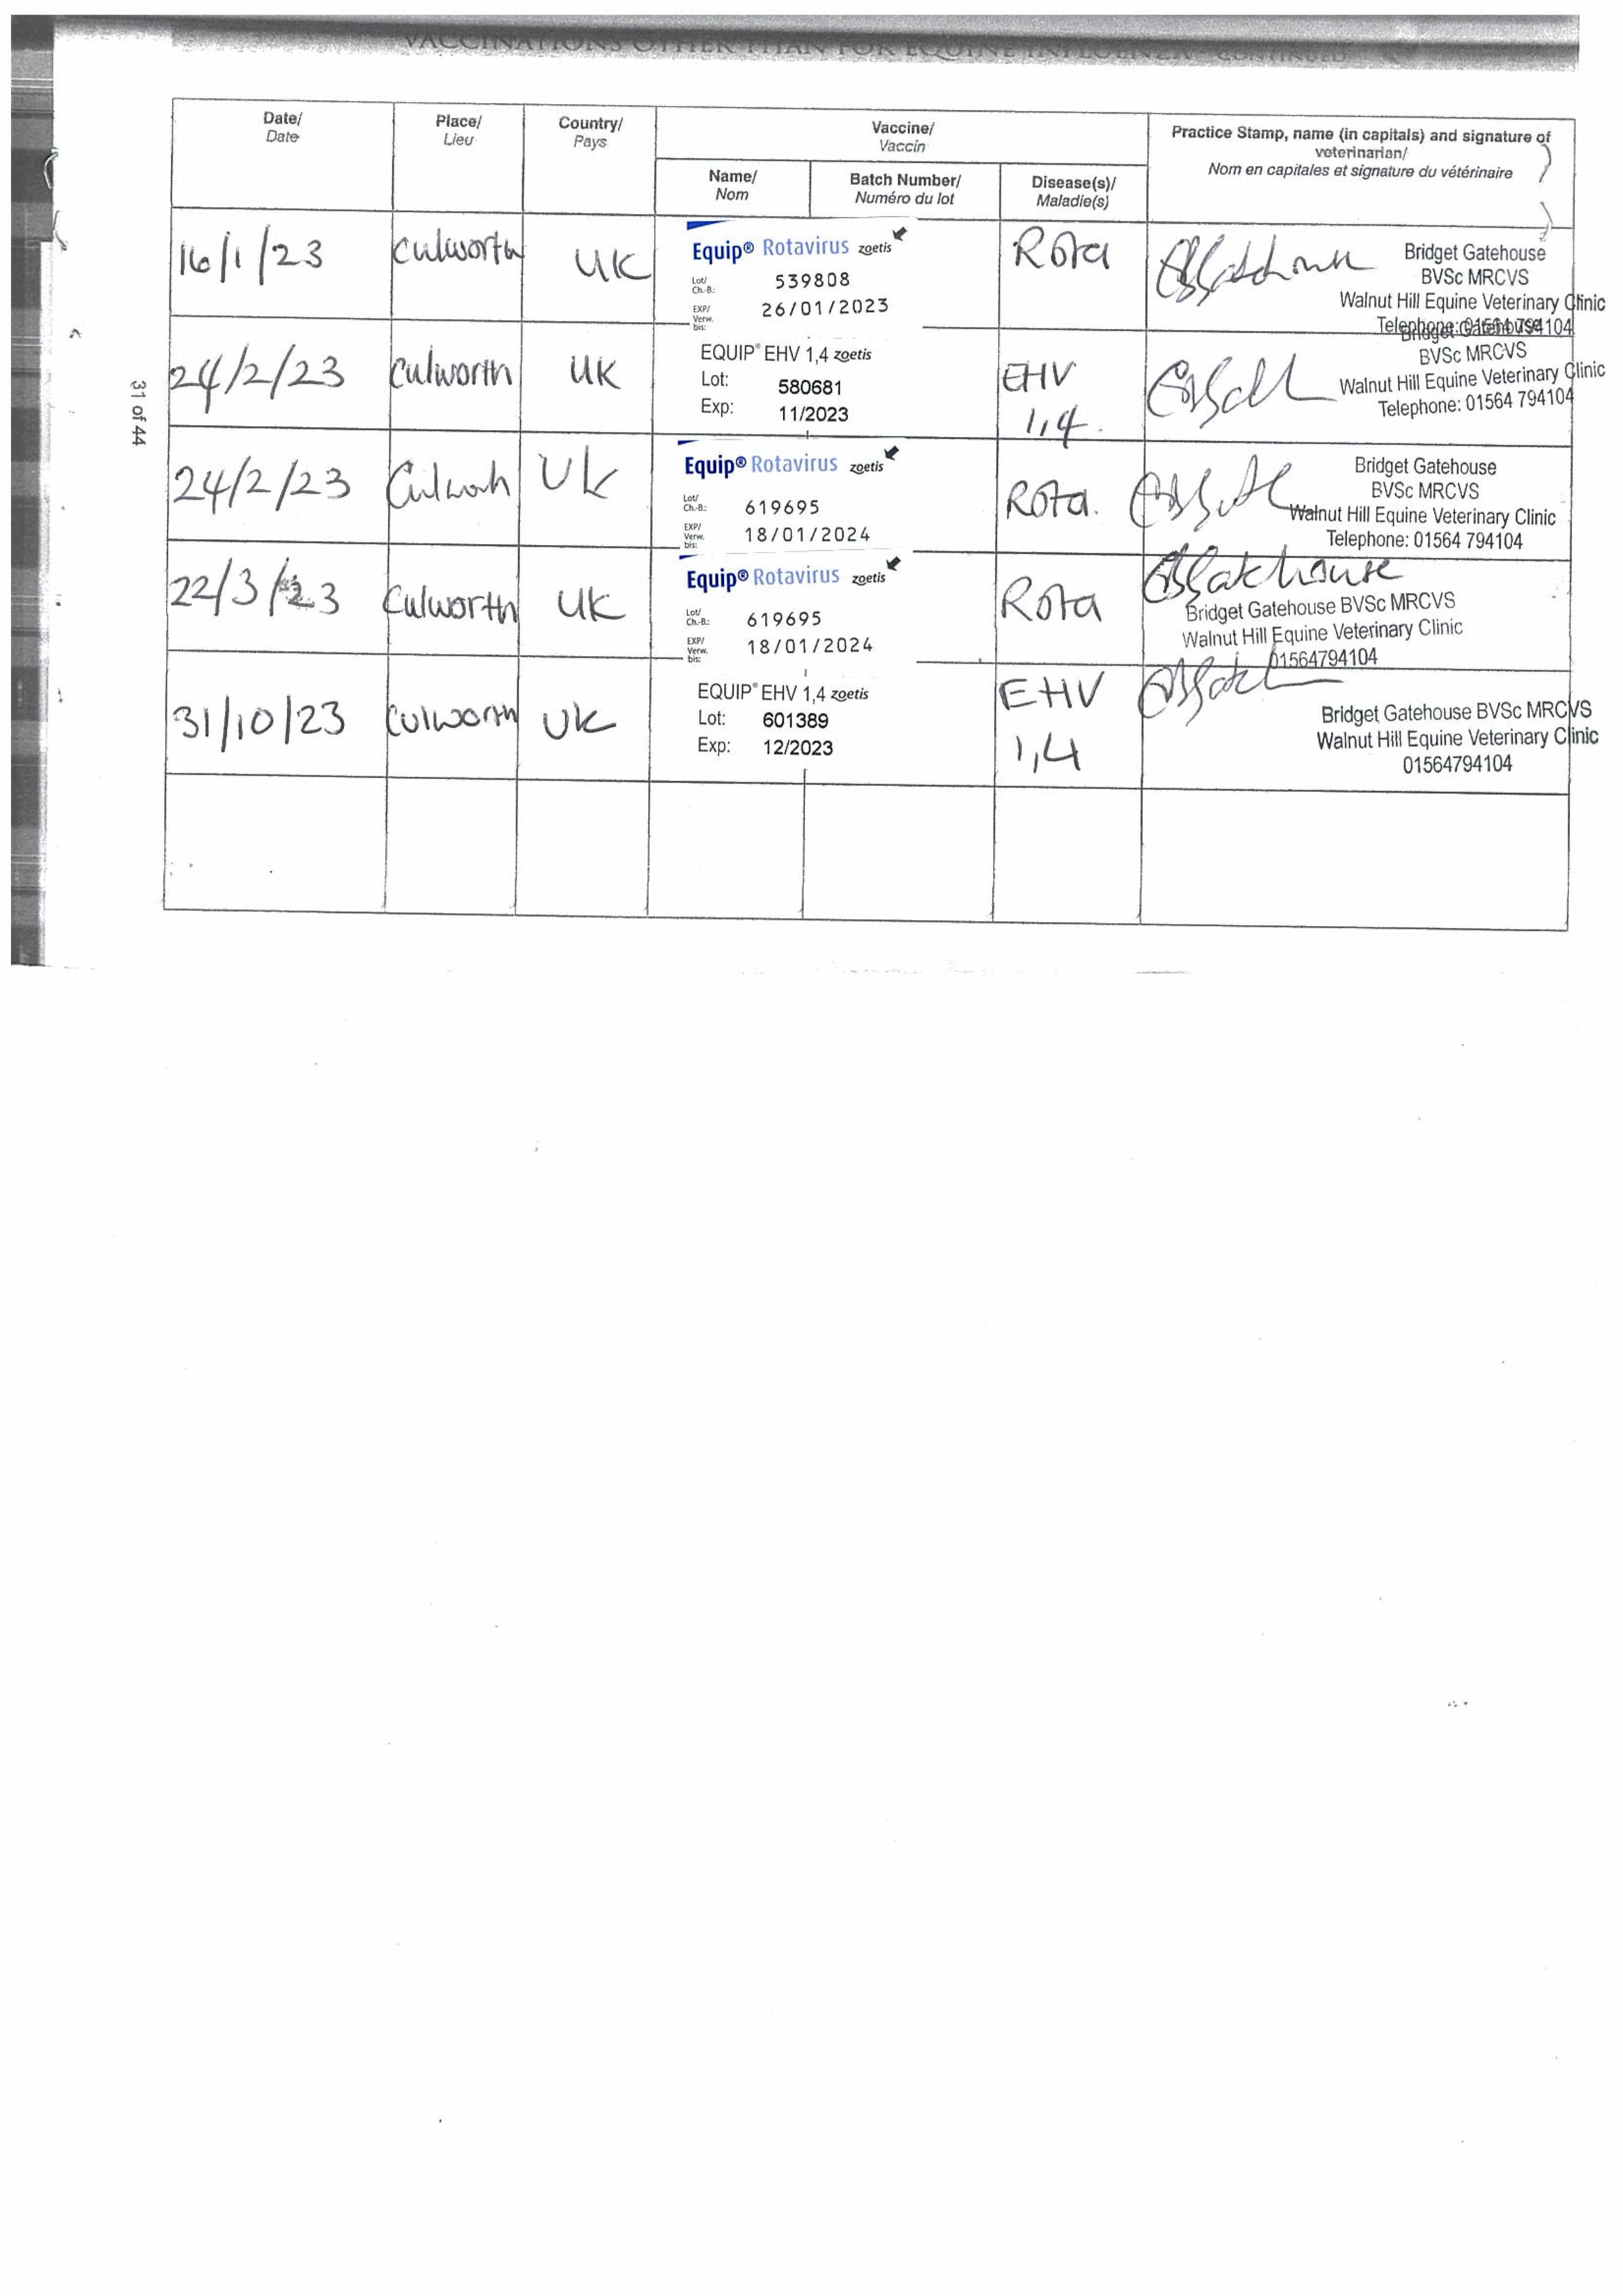 VACCINATIONS OTHER THAN FOR EQUINE INFLUENZA - CONTINUED
Date/
Date
Place/
Lieu
Country/
Pays
Vaccine/
Vaccin
Practice Stamp, name (in capitals) and signature of
veterinarian/
Nom en capitales et signature du vétérinaire
Name/
Nom
Batch Number/
Numéro du lot
Disease(s)/
Maladie(s)
16/1/23
Culworth
UK
Equip® Rotavirus zoetis
Lot/
Ch.-B.:
539808
EXP/
Verw.
bis:
26/01/2023
Rota
Bridget Gatehouse
BVSc MRCVS
Walnut Hill Equine Veterinary Clinic
Telephone: 01564 794104
24/2/23
Culworth
UK
EQUIP® EHV 1,4 zoetis
Lot: 580681
Exp: 11/2023
EHV
1,4.
Bridget Gatehouse
BVSc MRCVS
Walnut Hill Equine Veterinary Clinic
Telephone: 01564 794104
24/2/23
UK
Equip® Rotavirus zoetis
Lot/
Ch.-B.:
619695
EXP/
Verw.
bis:
18/01/2024
Rota.
Bridget Gatehouse
BVSc MRCVS
Walnut Hill Equine Veterinary Clinic
Telephone: 01564 794104
22/3/23
Culworth
UK
Equip® Rotavirus zoetis
Lot/
Ch.-B.:
619695
EXP/
Verw.
bis:
18/01/2024
Rota
Bridget Gatehouse BVSc MRCVS
Walnut Hill Equine Veterinary Clinic
01564794104
31/10/23
Culworth
UK
EQUIP® EHV 1,4 zoetis
Lot: 601389
Exp: 12/2023
EHV
1,4
Bridget Gatehouse BVSc MRCVS
Walnut Hill Equine Veterinary Clinic
01564794104
31 of 44